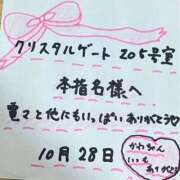 クリスタルゲート205号室
本指名様へ
電マと他にもいっぱいありがと
10月28日
かわちん
いつも
ありがとう